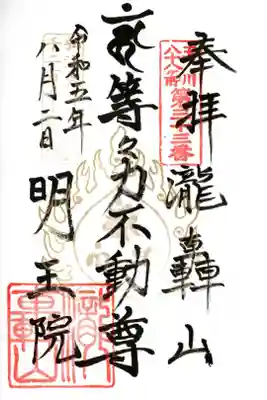 奉拝
瀧轟山
玉川
八十八ヶ所
第三十三番
等々力不動尊
明王院
令和五年
八月二日